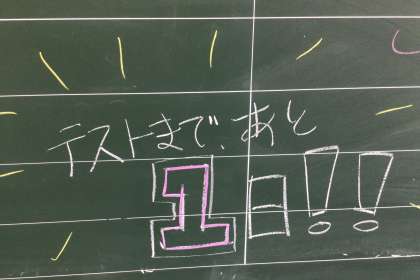 テストまで、あと
1日!!